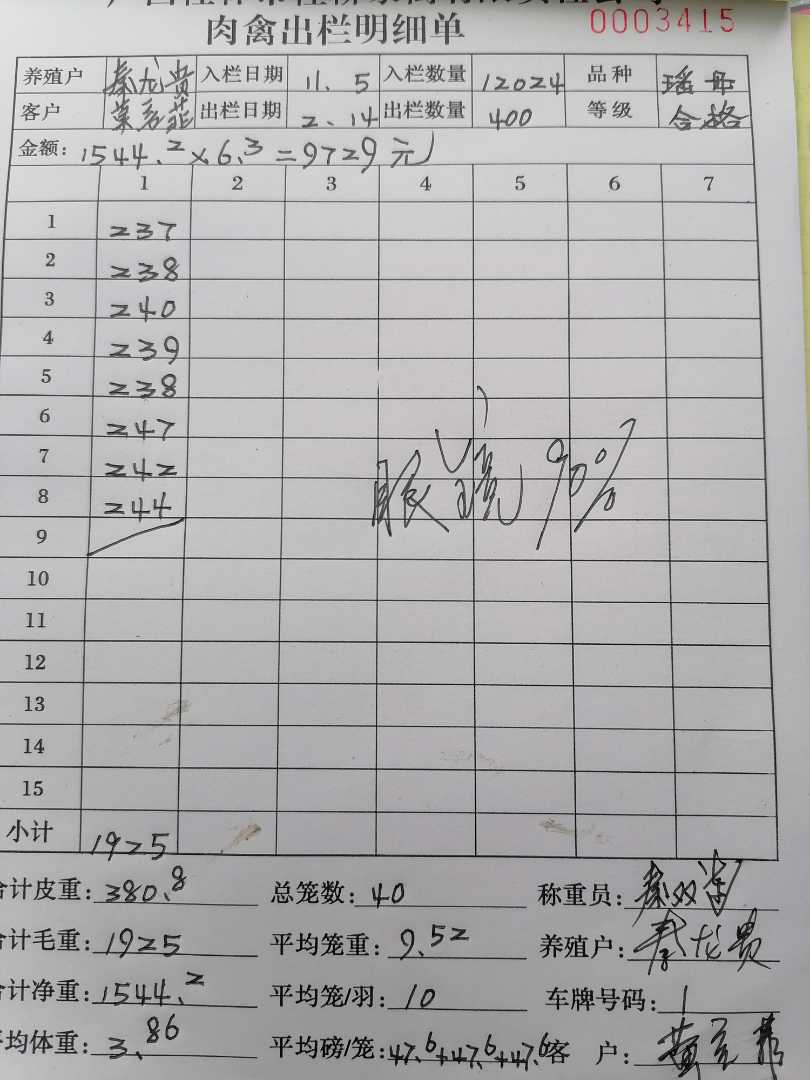 肉禽出栏明细单 0003415
养殖户 秦龙贵 入栏日期 11.5 入栏数量 12024 品种 瑶丹
客户 出栏日期 2.14 出栏数量 400 等级 合格
金额: 1544.2×6.3=9729元
1 2 3 4 5 6 7
1 237
2 238
3 240
4 239
5 238
6 247
7 242
8 244
眼镜90%
9
10
11
12
13
14
15
小计 1925
合计皮重: 380.8 总笼数: 40 称重员: 秦双
合计毛重: 1925 平均笼重: 9.52 养殖户: 秦龙贵
合计净重: 1544.2 平均笼/羽: 10 车牌号码: 1
平均体重: 3.86 平均磅/笼: 47.6+47.6+47.6 客 户: